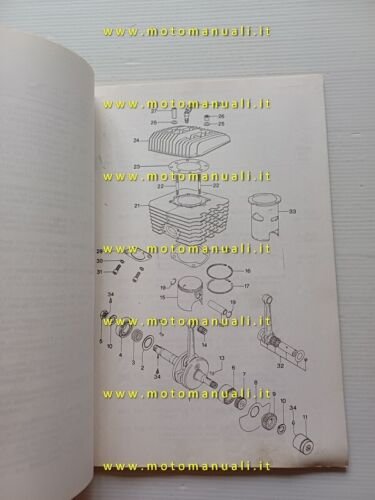 www.motomanuali.it
www.motomanuali.it
27
25
26
25
24
www.motomanuali.it
23
22
22
www.motomanuali.it
21
33
www.motomanuali.it
29
30
31
16
17
www.motomanuali.it
19
15
19
34
14
5
10
www.motomanuali.it
4
3
2
13
32
6
7
8
9
10
34
34
11
www.motomanuali.it
www.motomanuali.it